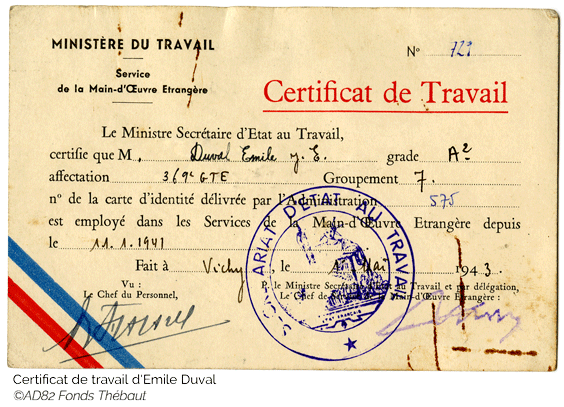 MINISTÈRE DU TRAVAIL
Service
de la Main-d'Œuvre Etrangère
N° 729
Certificat de Travail
Le Ministre Secrétaire d'Etat au Travail,
certifie que M. Duval Emile J. E. grade A2
affectation 369e GTE Groupement 7.
n° de la carte d'identité délivrée par l'Administration 575
est employé dans les Services de la Main-d'Œuvre Etrangère depuis
le 11.1.1941
Fait à Vichy le Mai 1943.
Vu :
Le Chef du Personnel,
P. le Ministre Secrétaire d'Etat au Travail et par délégation,
Le Chef de la Main-d'Œuvre Etrangère :
SECRÉTARIAT D'ETAT AU TRAVAIL
ETAT FRANÇAIS
Certificat de travail d'Emile Duval
©AD82 Fonds Thébaut